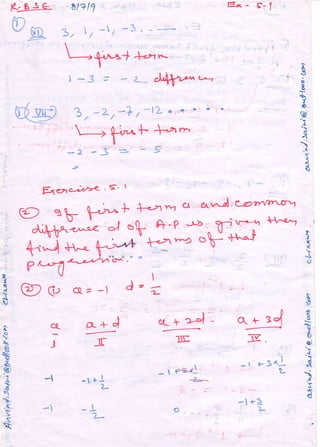 R.B.S.E. 8/7/9 Ex - 5.1
① (ii) 3, 1, -1, -3, ......
first term
1 - 3 = - 2 diffrence
① VII 3, -2, -7, -12 .....
first term
-2 - 3 = - 5
Exercise. 5.1
② If first term a and common
difference d of A.P is given then
find the first terms of that
② (i) a = -1 d = 1/2
a a + d a + 2d a + 3d
I II III IV
-1 -1 + 1/2 -1 + 3 × 1/2
-1 - 1/2 0 -1 + 3/2
arvind.saini@outlook.com
chirawa
arvind.saini@outlook.com
Arvind.saini@outlook.com chirawa